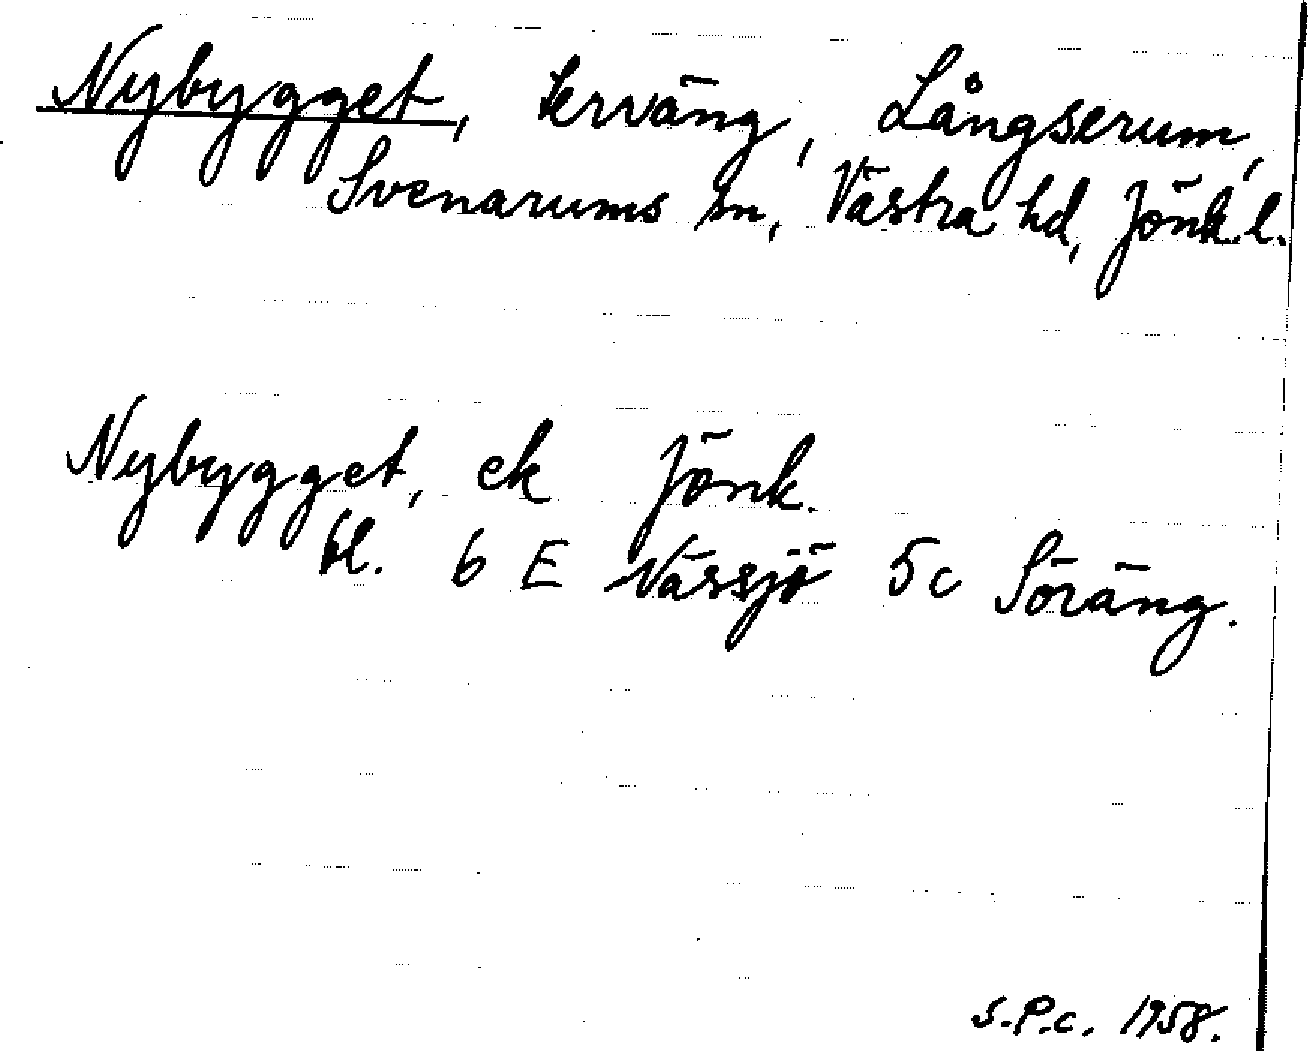 Nybygget, terräng, Långserum,
Svenarums sn, Västra hd, Jönk.l.
Nybygget, ek Jönk.
bl. 6 E Nässjö 5c Söräng.
S.P.c. 1958.